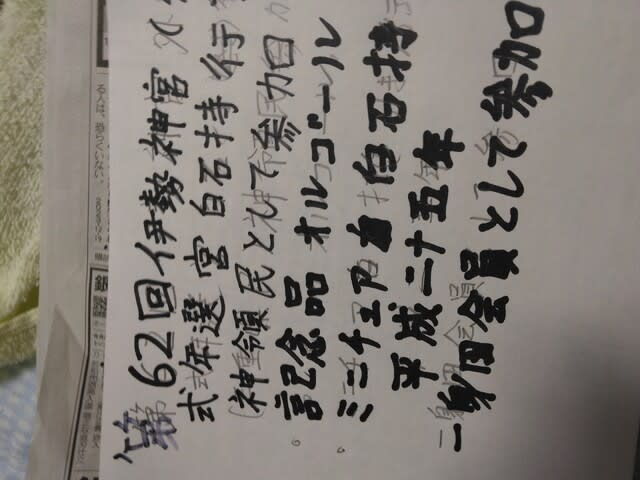 第62回伊勢神宮
式年選宮 白石持行
(神領民として参加
記念品 オルゴール
ミニチェア 白石持
平成二十五年
一身田会員として参加